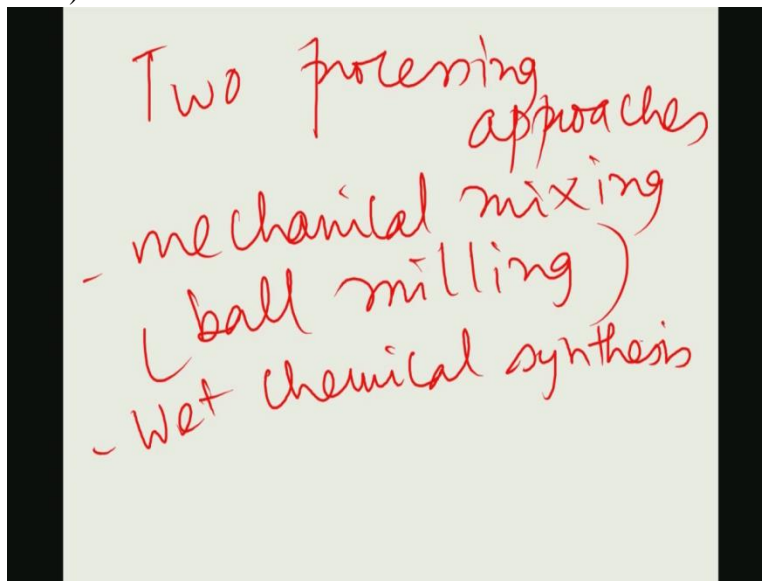 Two processing
approaches
- mechanical mixing
(ball milling)
- Wet chemical synthesis